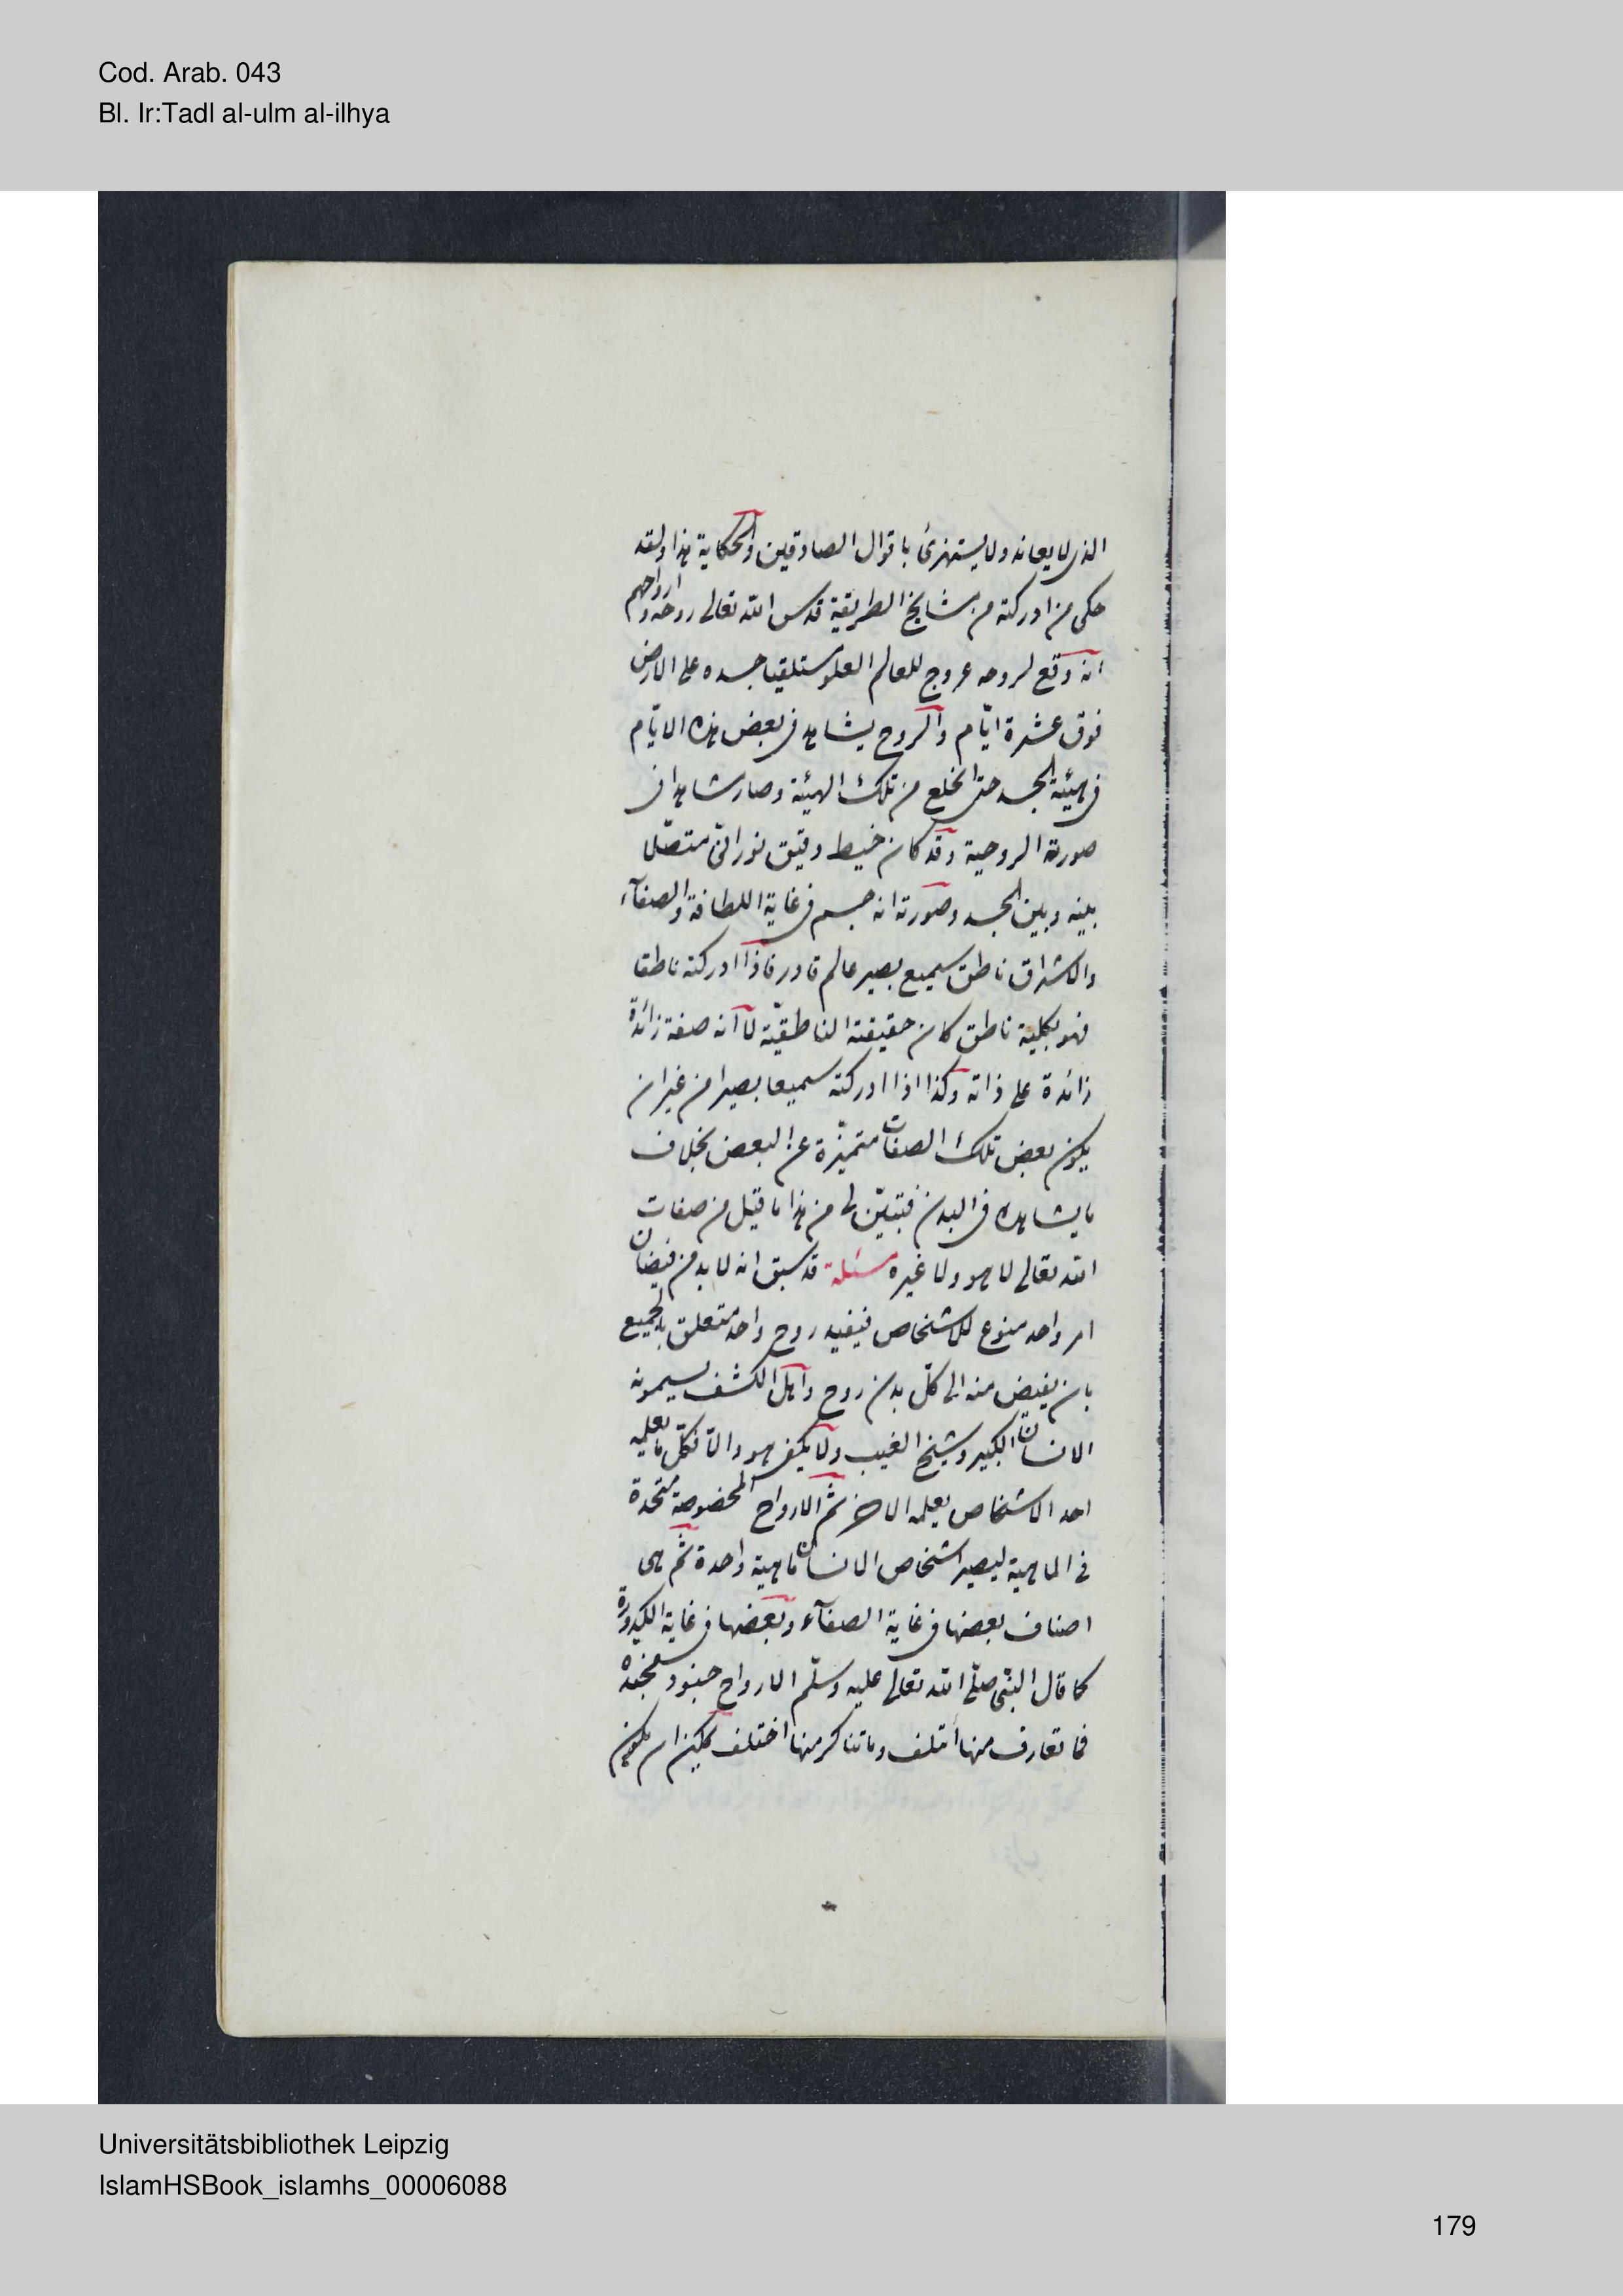 Cod. Arab. 043
Bl. Ir:Tadl al-ulm al-ilhya
الذى لا يعانه ولا يستهزئ باقوال الصادقين والحكاية هذا ولقد
حكى من ادركته من مشايخ الطريقة قدس الله تعالى روحه وارواحهم
انه وقع لروحه عروج للعالم العلو مستلقيا جسده على الارض
فوق عشرة ايّام والروح يشاهد فى بعض هذه الايّام
فى هيئة الجسد حتى انخلع من تلك الهيئة وصار مشاهدا فى
صورته الروحية وقد كان خيط دقيق نورانىّ متصّلا
بينه وبين الجسد وصورته انه جسم فى غاية اللطافة والصفآء
والاشراق ناطق سميع بصير عالم قادر فاذا ادركته ناطقا
فهو بكلية ناطق كان حقيقته الناطقيّة لا انه صفة زائدة
زائدة على ذاته وكذا اذا ادركته سميعا بصيرا من غير ان
يكون بعض تلك الصفات متميزّة عن البعض بخلاف
ما يشاهده فى البدن فتبيّن لى من هذا ما قيل من صفات
الله تعالى لا هو ولا غيره مسئلة قد سبق انه لا بد من فيضان
امر واحد منوع للاشخاص فيفيد روح واحد متعلق بالجميع
بان يفيض منه الى كلّ بدن روح واهل الكشف يسمونه
الانسان الكبير وشيخ الغيب ولا يكفى هو والّا فكلّ ما يعلمه
احد الاشخاص يعلمه الاخر ثم الارواح المخصوصة متحدة
فى الماهية ليصير اشخاص الانسان ماهية واحدة ثم هى
اصناف بعضها فى غاية الصفآء وبعضها فى غاية الكدورة
كما قال النبّى صلّى الله تعالى عليه وسلّم الارواح جنود مجندة
فما تعارف منها ائتلف وما تناكر منها اختلف لكن ان يكون
Universitätsbibliothek Leipzig
IslamHSBook_islamhs_00006088
179